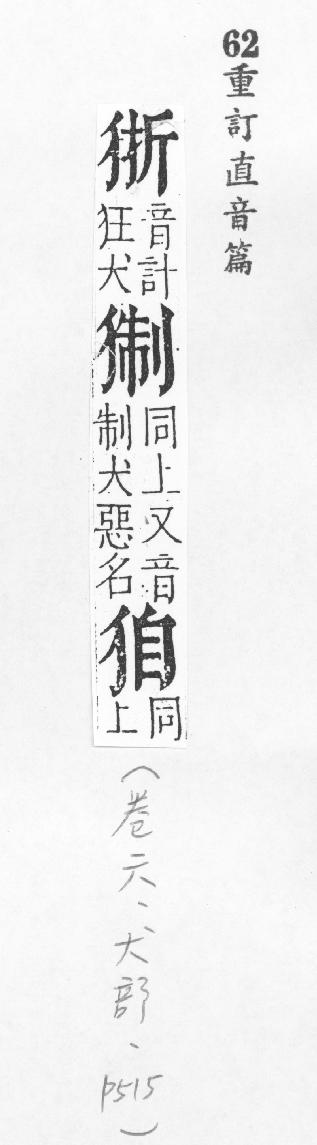 62重訂直音篇
狾
音計
狂犬
猘
同上又音
制犬惡名
同
上
(卷六、犬部、p515)